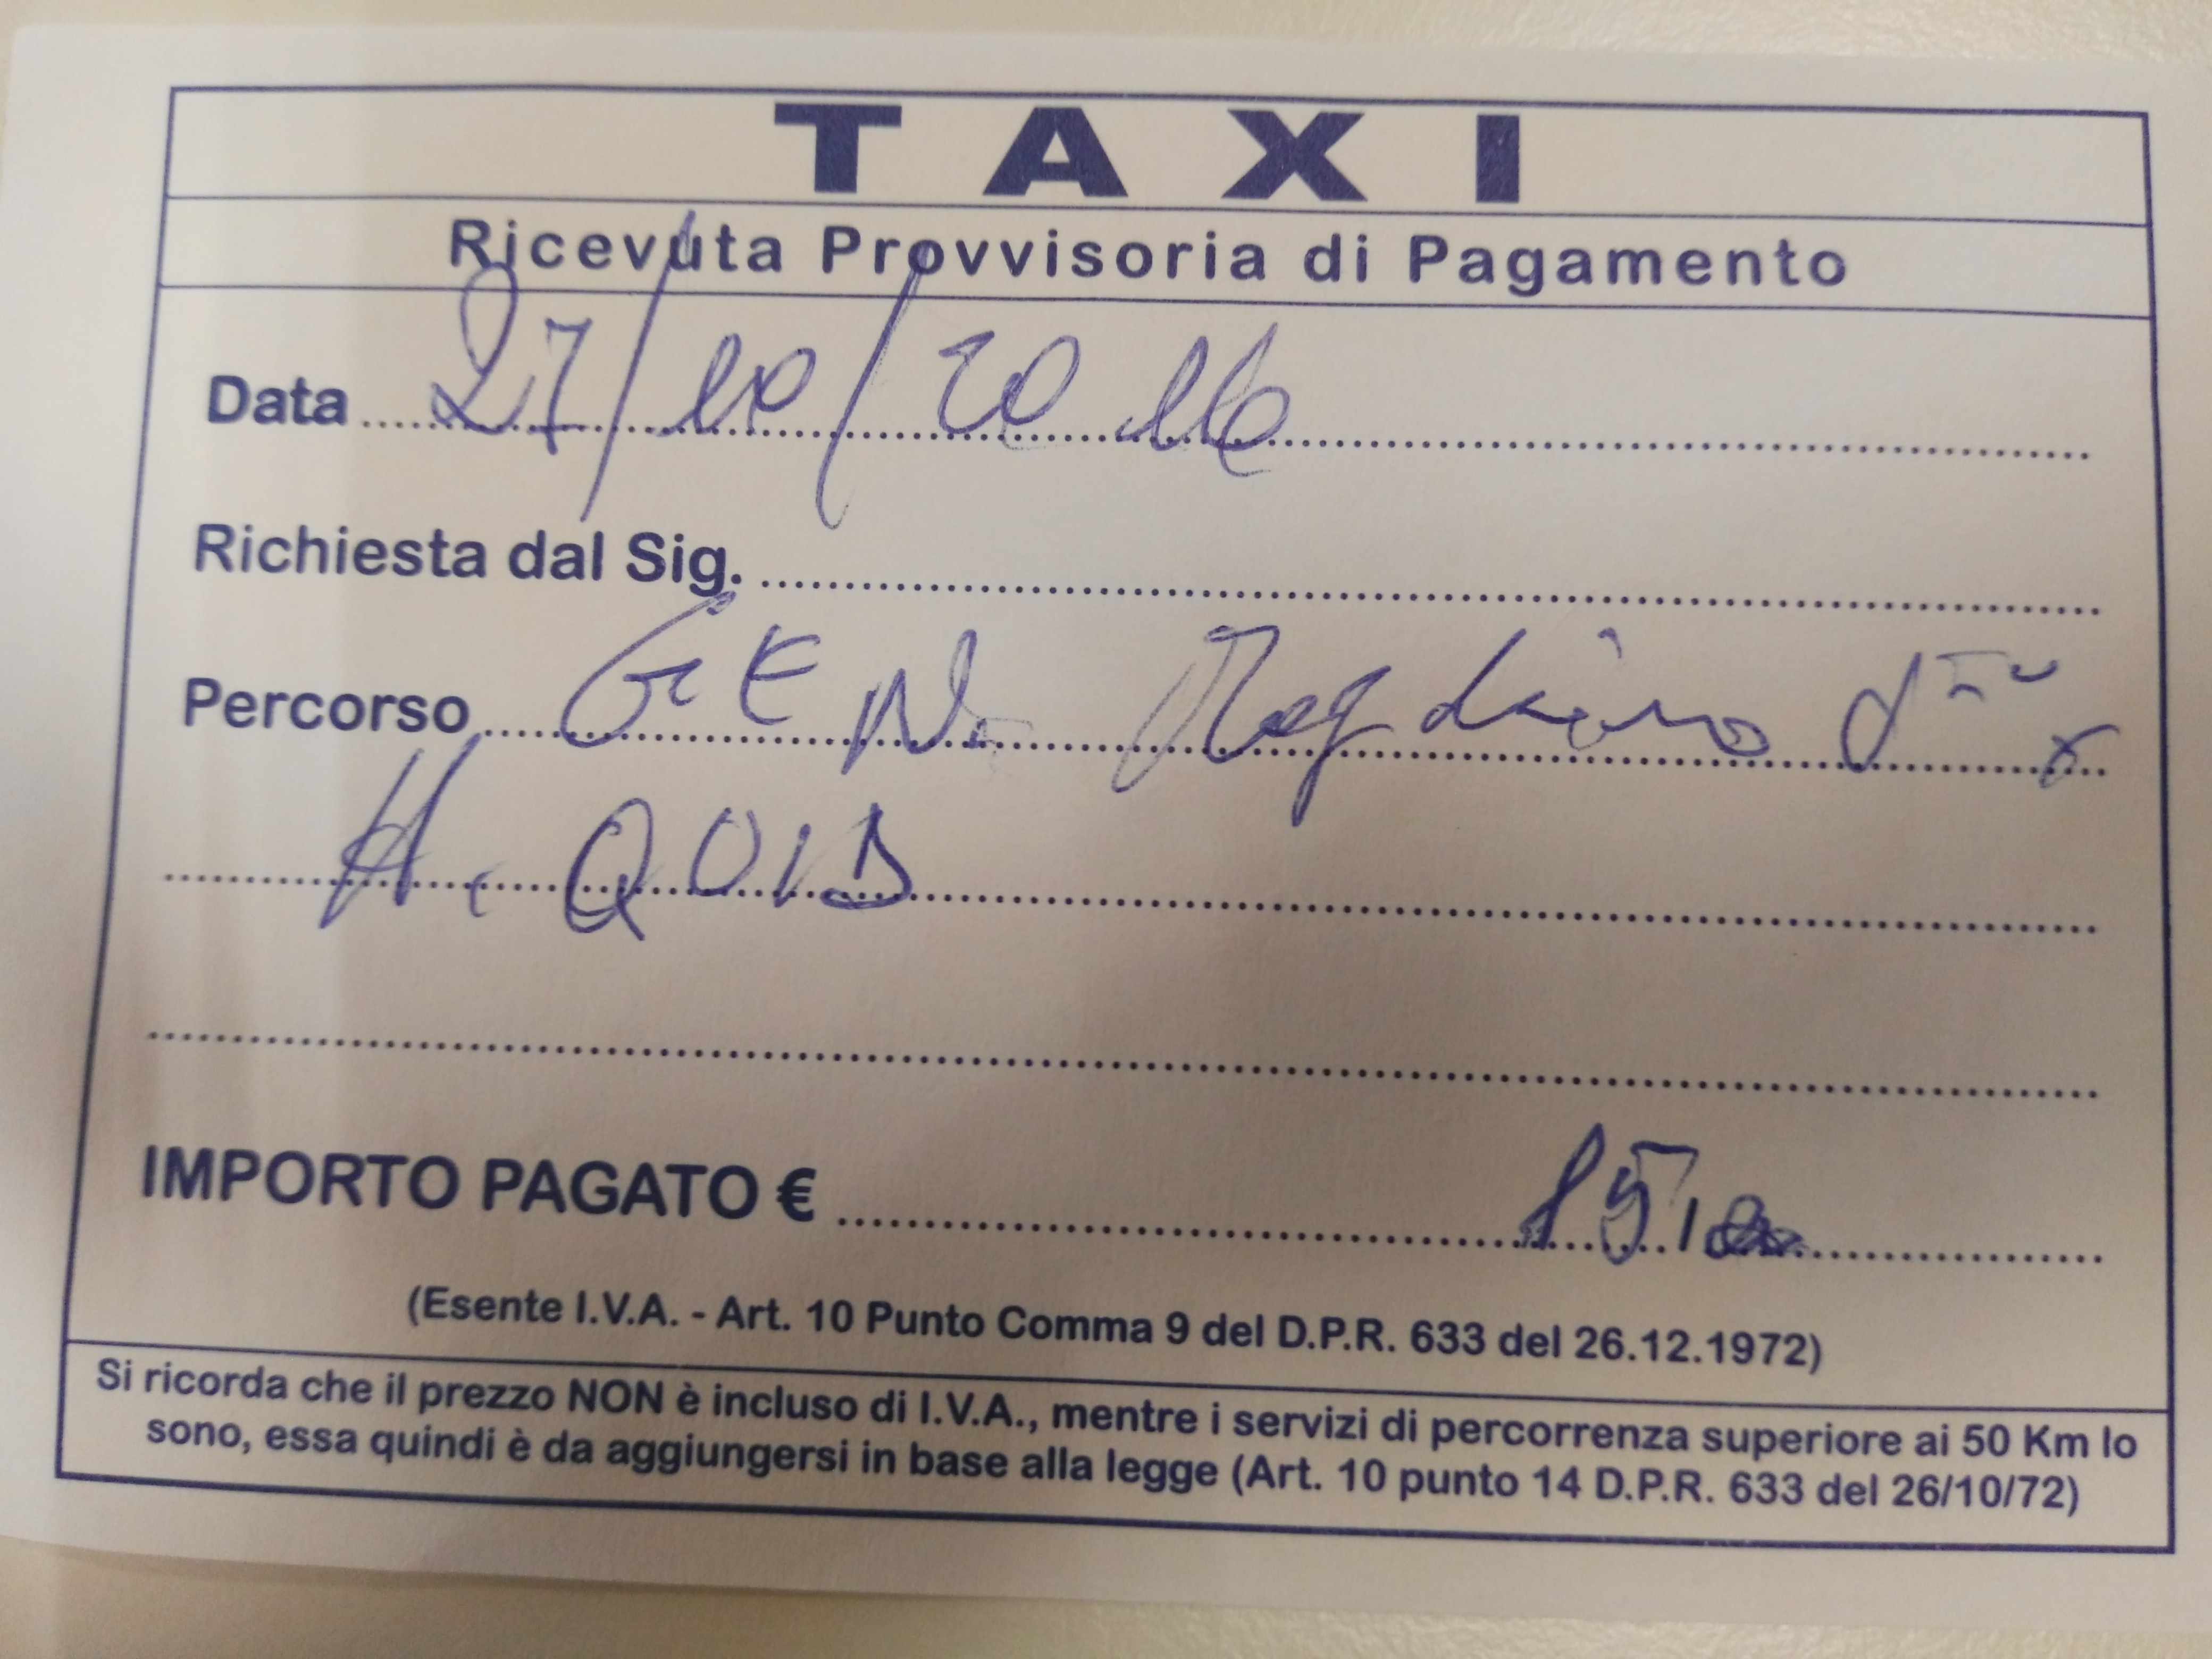 TAXI
Ricevuta Provvisoria di Pagamento
Data 27/10/2016
Richiesta dal Sig.
Percorso GEN.
H. QUID
IMPORTO PAGATO € 15,00
(Esente I.V.A. - Art. 10 Punto Comma 9 del D.P.R. 633 del 26.12.1972)
Si ricorda che il prezzo NON è incluso di I.V.A., mentre i servizi di percorrenza superiore ai 50 Km lo
sono, essa quindi è da aggiungersi in base alla legge (Art. 10 punto 14 D.P.R. 633 del 26/10/72)